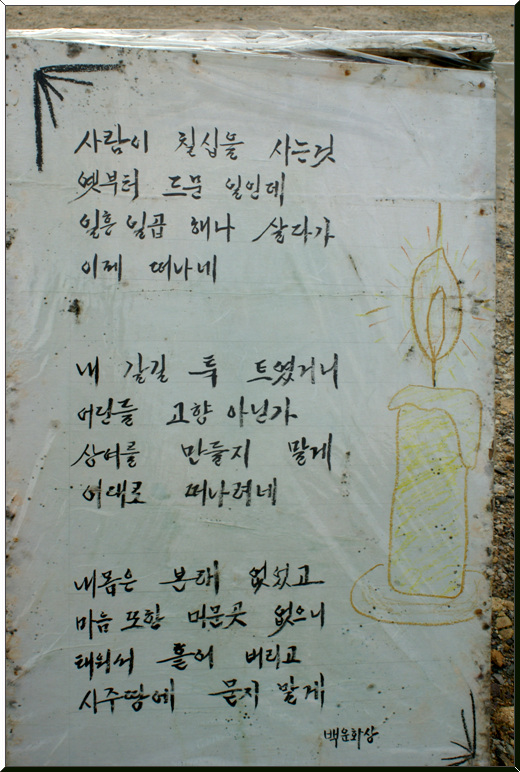 사람이 칠십을 사는것
옛부터 드문 일인데
일흔 일곱 해나 살다가
이제 떠나네
내 갈길 툭 트였거니
어딘들 고향 아닌가
상여를 만들지 말게
이대로 떠나려네
내몸은 본래 없었고
마음 또한 머문곳 없으니
태워서 흩어 버리고
시주땅에 묻지 말게
백운화상